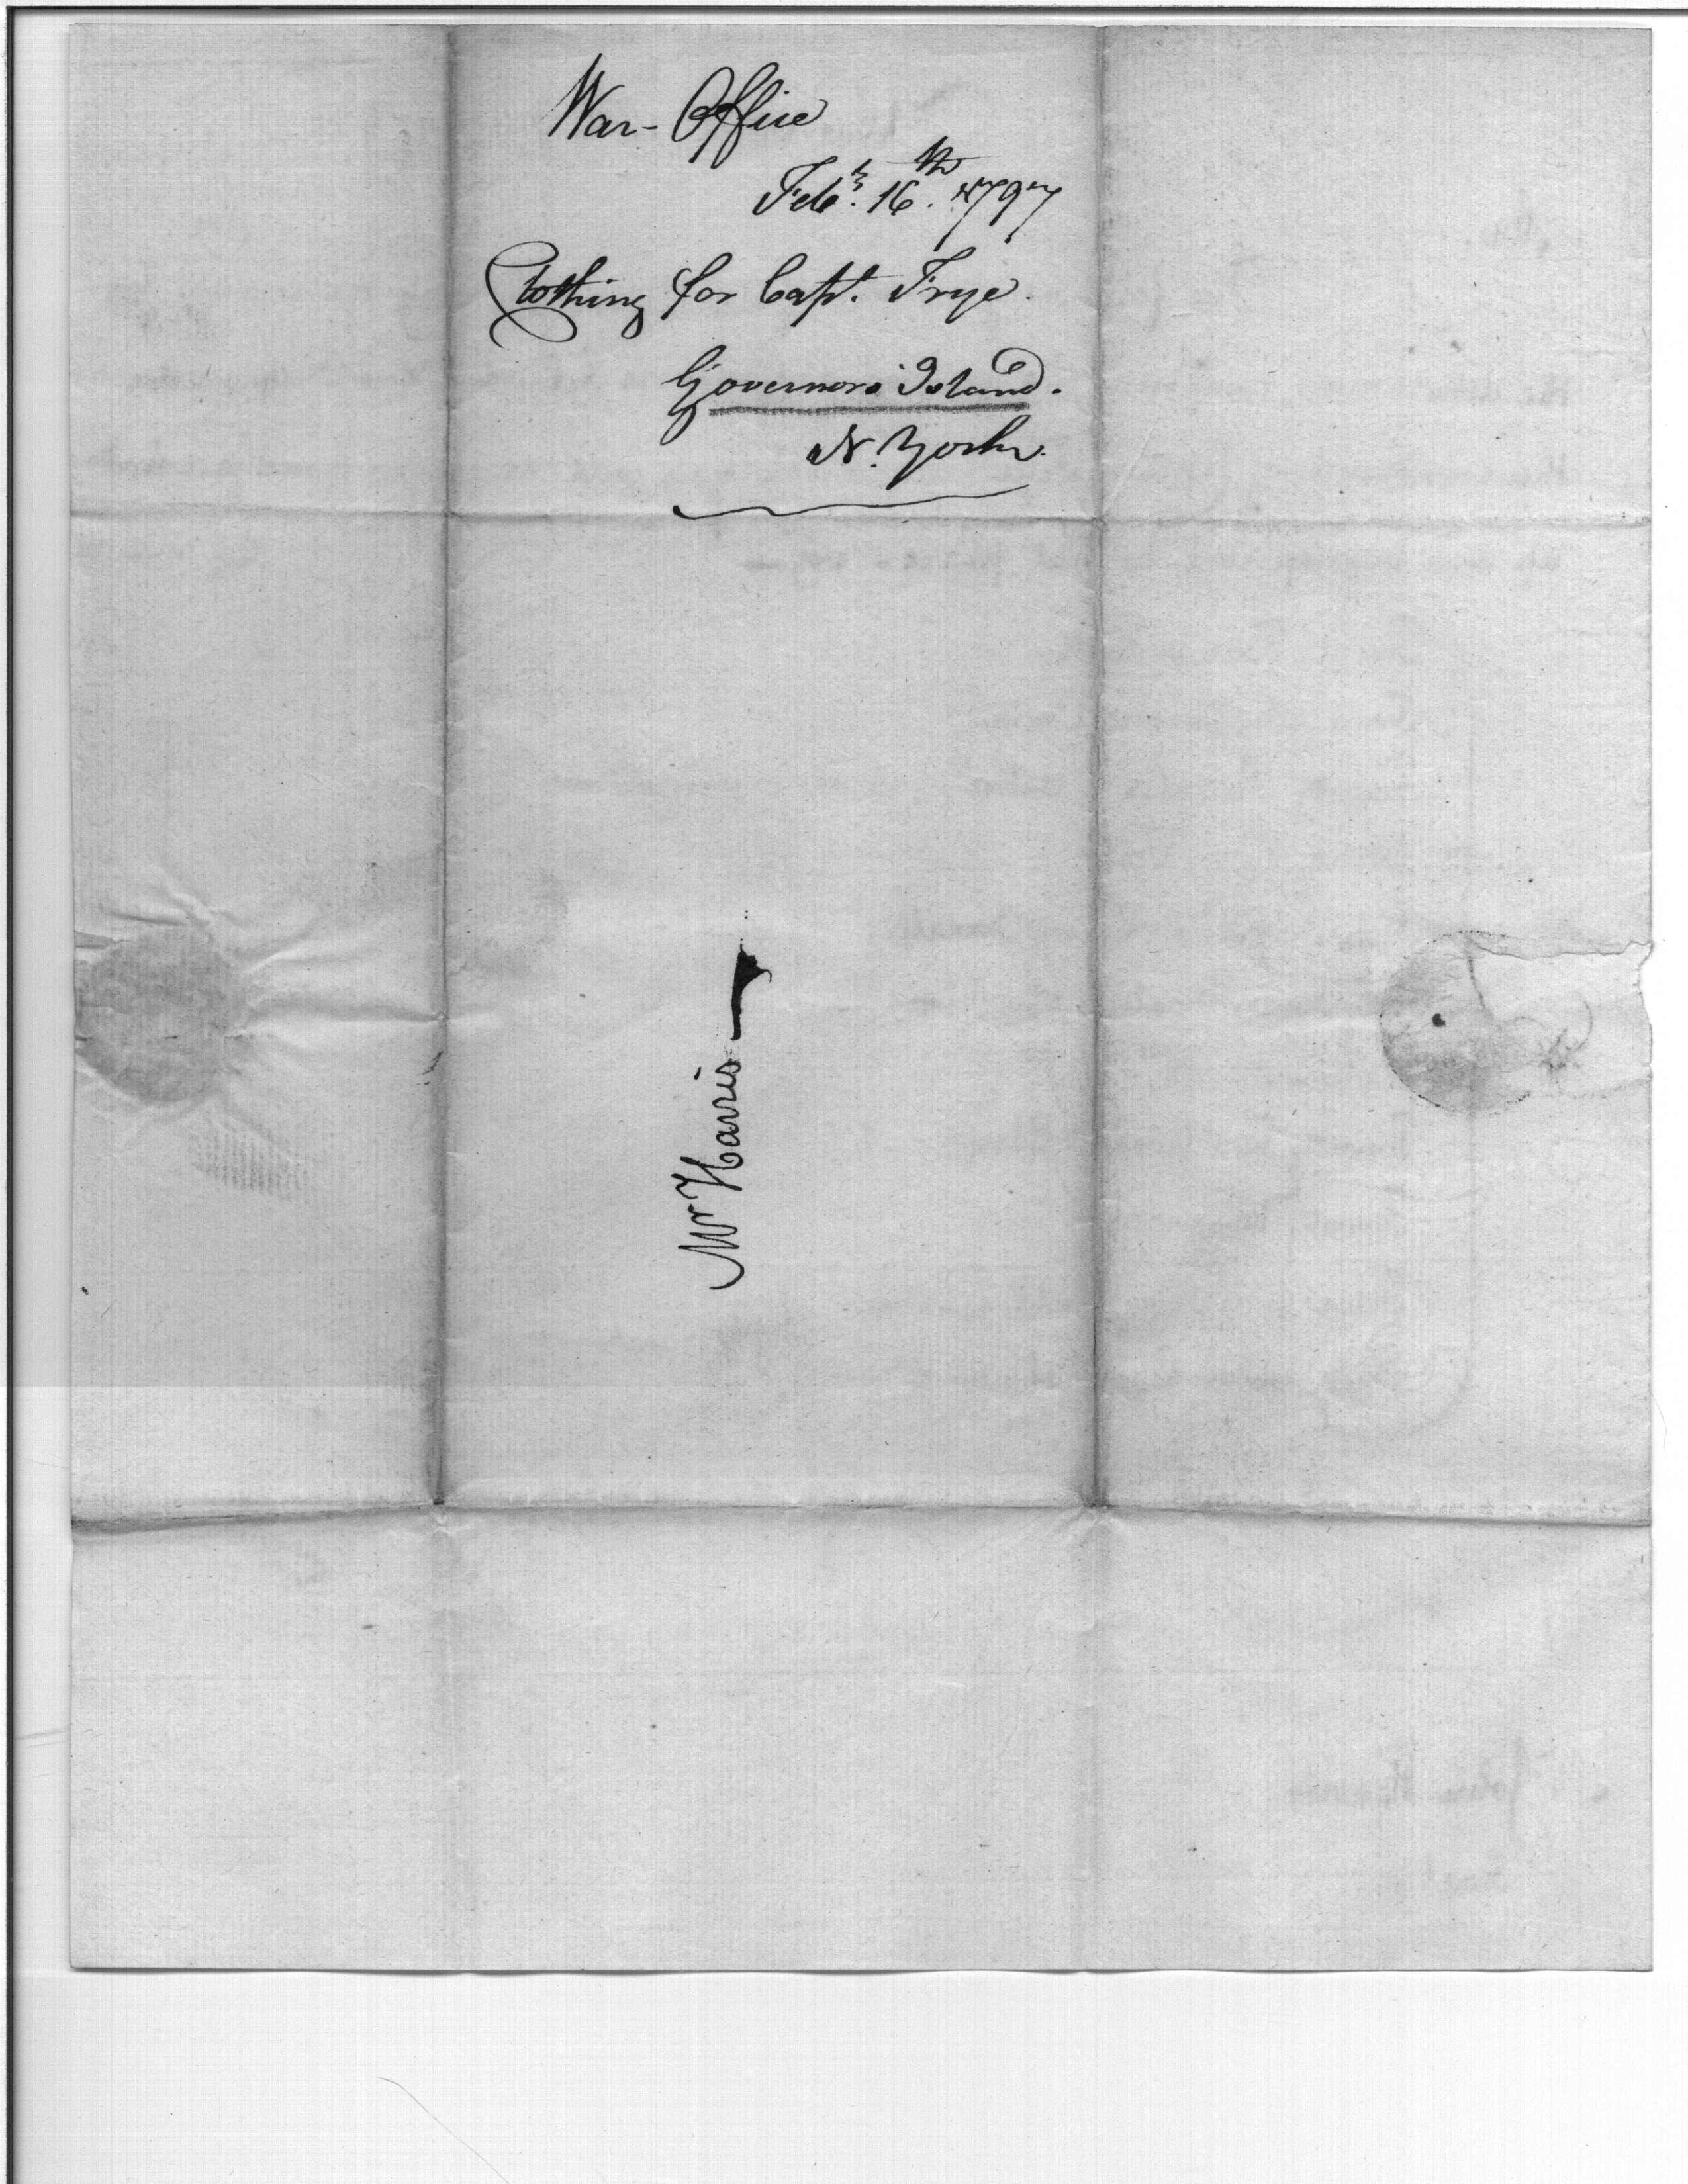 War-Office
Feby. 16th. 1797
Clothing for Capt. Frye.
Governors Island.
N. York.
Mr Harris